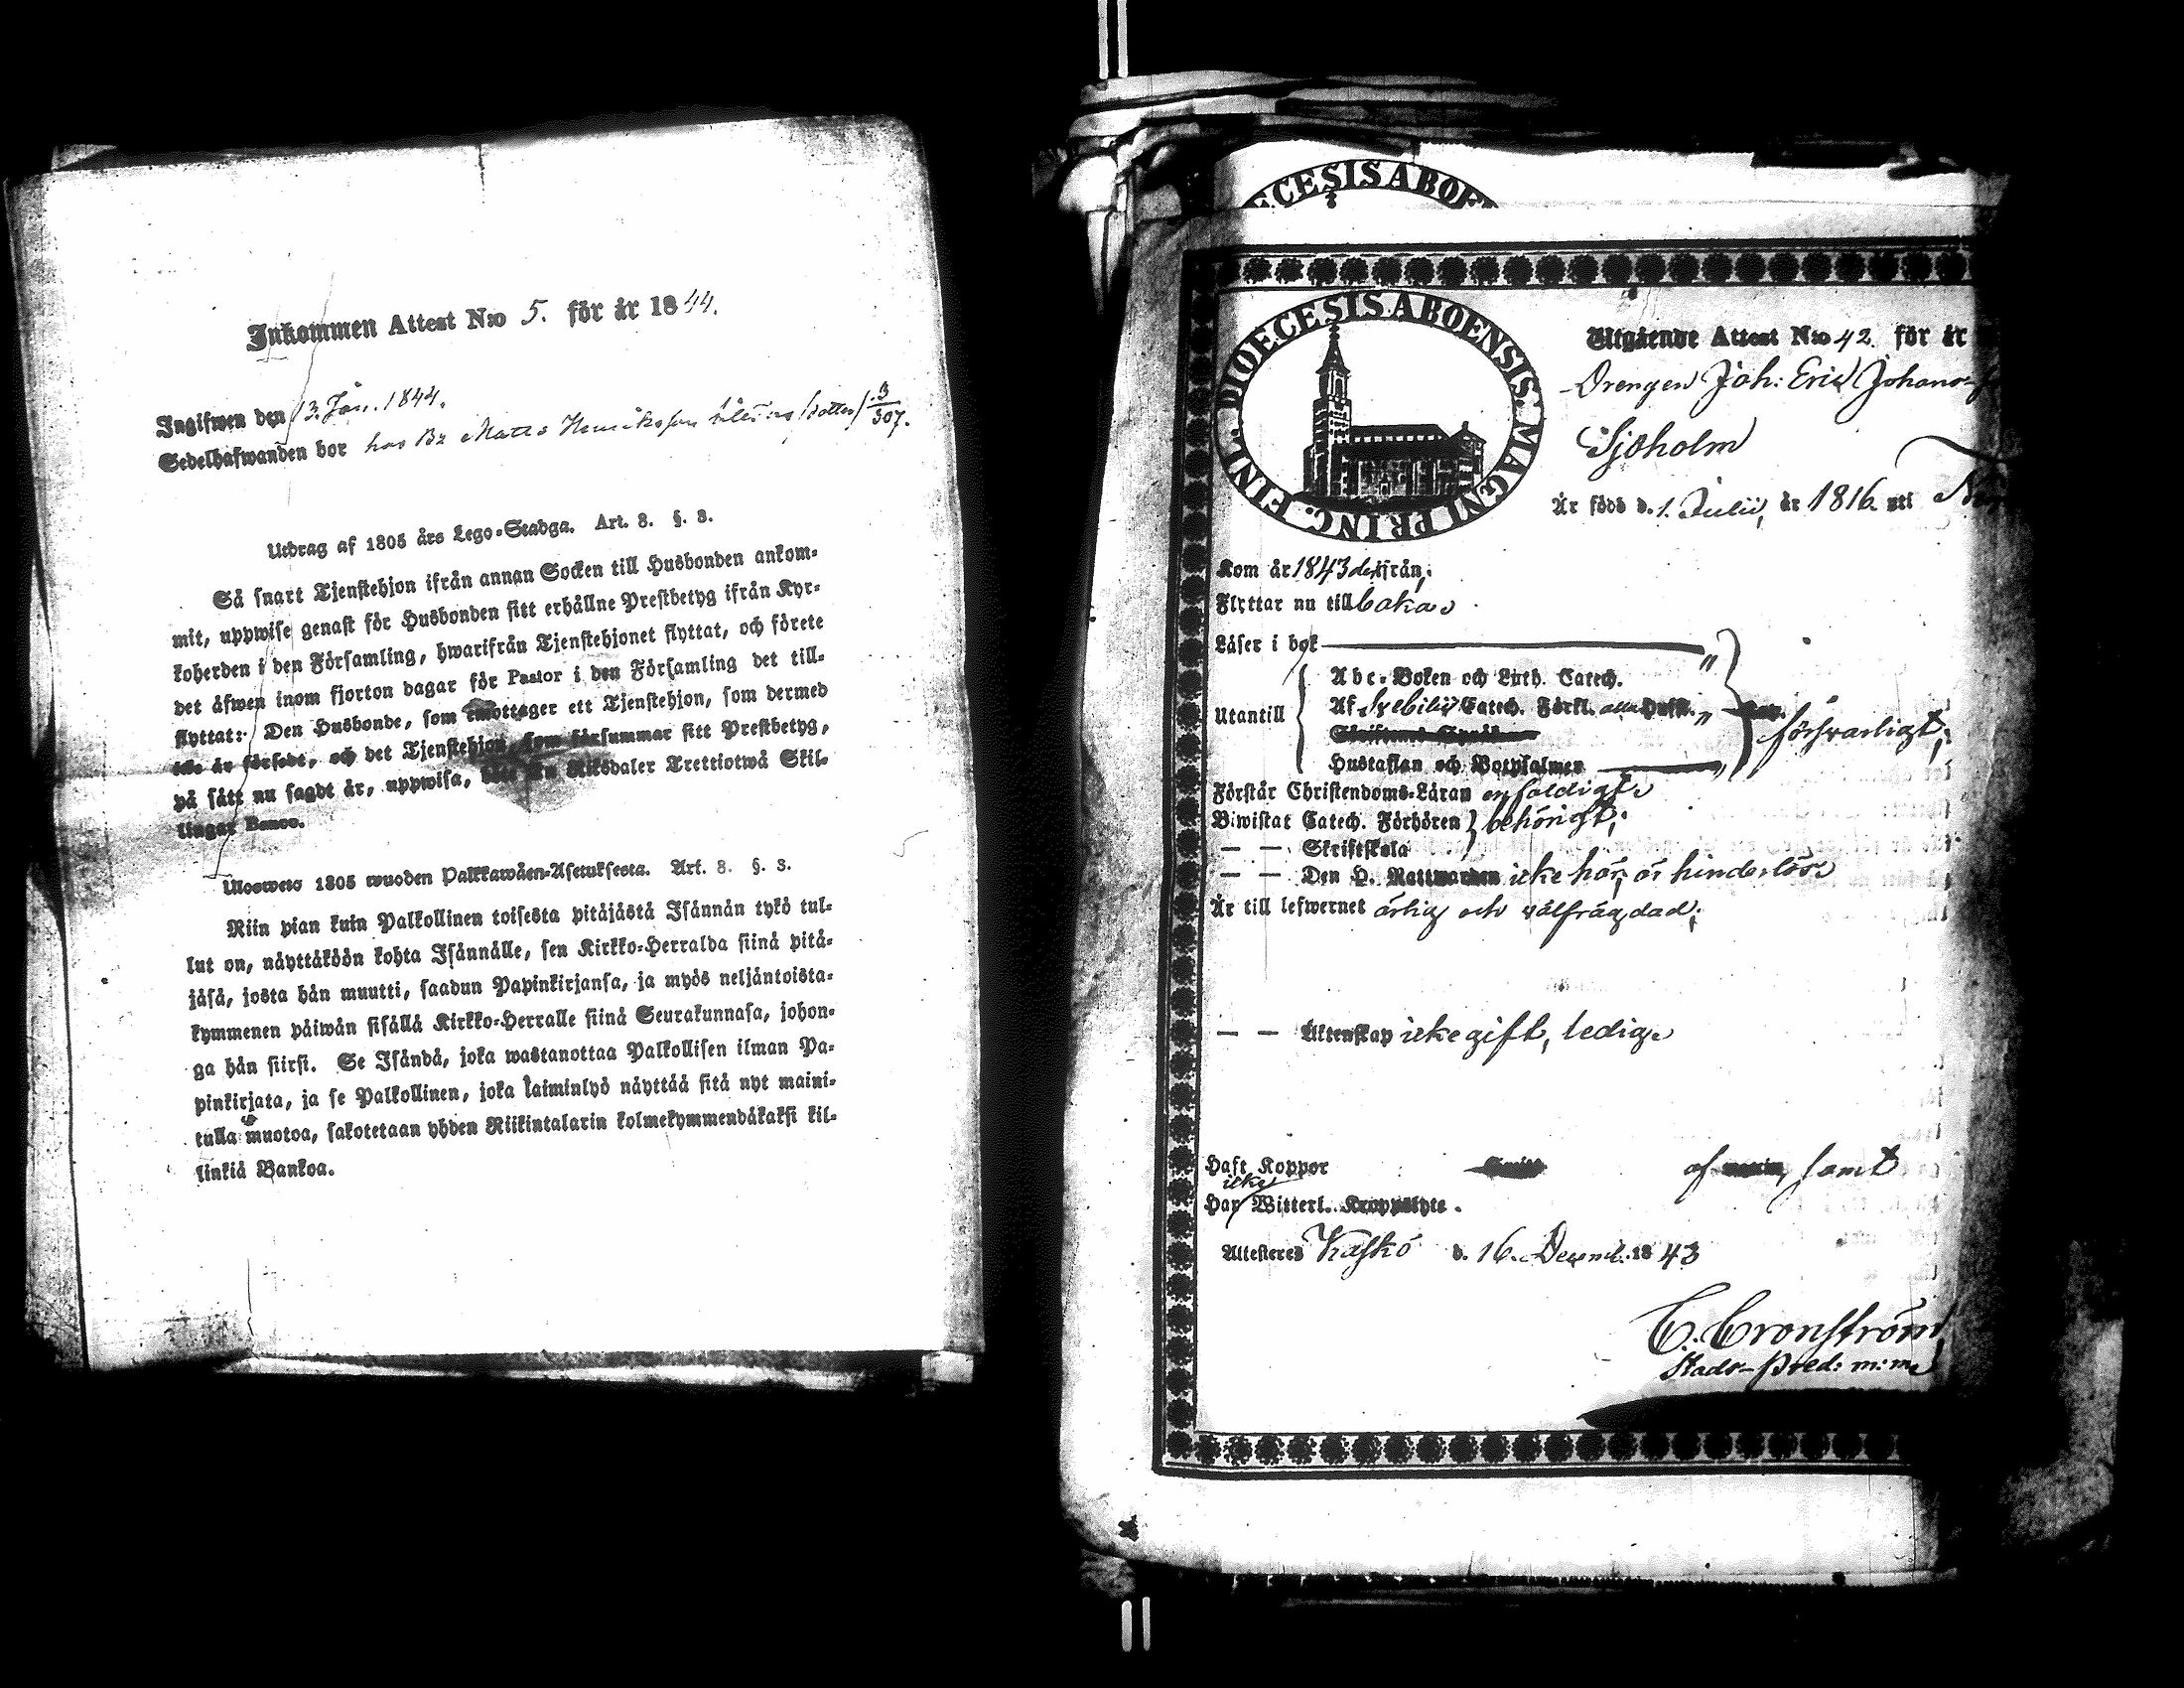 Inkommen Attest N:o 5. för år 1844.
Ingifwen den 13. Jan. 1844.
Sedelhafwanden bor hos Bz Matts Henriksson 3/307.
Utdrag af 1805 års Lego-Stadga. Art. 8. §. 3.
Så snart Tjenstehjon ifrån annan Socken till Husbonden ankom-
mit, uppwise genast för Husbonden sitt erhållne Prestbetyg ifrån Kyr-
koherden i den Församling, hwarifrån Tjenstehjonet flyttat, och förete
det äfwen inom fjorton dagar för Pastor i den Församling det till-
flyttat: Den Husbonde, som emottager ett Tjenstehjon, som dermed
icke är försedt, och det Tjenstehjon, som försummar sitt Prestbetyg,
på sätt nu sagdt är, uppwisa, Riksdaler Trettiotwå Skil-
lingar Banco.
Ulosweto 1805 wuoden Palkkawäen-Asetuksesta. Art. 8. §. 3.
Niin pian kuin Palkollinen toisesta pitäjästä Isännän tykö tul-
lut on, näyttäköön kohta Isännälle, sen Kirkko-Herralda siinä pitä-
jäsä, josta hän muutti, saadun Papinkirjansa, ja myös neljäntoista-
kymmenen päiwän sisällä Kirkko-Herralle siinä Seurakunnasa, johon-
ga hän siirsi. Se Isändä, joka wastanottaa Palkollisen ilman Pa-
pinkirjata, ja se Palkollinen, joka laiminlyö näyttää sitä nyt maini-
tulla muotoa, sakotetaan yhden Riikintalarin kolmekymmendäkaksi kil-
linkiä Bankoa.
ECESIS ABOEN
DIOECESIS ABOENSIS. MAGNI PRINC. FINL.
Utgående Attest N:o 42. för år
Drengen Joh: Eric Johans-
Sjöholm
Är född d. 1. Julii, år 1816. uti
Kom år 1843 derifrån,
Flyttar nu tillbaka.
Läser i bok "
Utantill
Abc-Boken och Luth. Catech.
Af Svebilii Catech. Förkl. Hufst. "
Hustaflan och Botpsalmer "
försvarligt;
Förstår Christendoms-Läran enfaldigt.
Biwistat Catech. Förhören behörigt;
— — Skriftskola
— — Den H. Nattwarden icke här, är hinderlös.
Är till lefwernet ärlig och välfrägdad;
— — Äktenskap icke gift, ledig.
Haft Koppor af samt
icke
Har Witterl. Kroppslyte.
Attesteres Kaskö d. 16. Decemb. 1843
C. Cronström,
Stads-Pred: m:m.